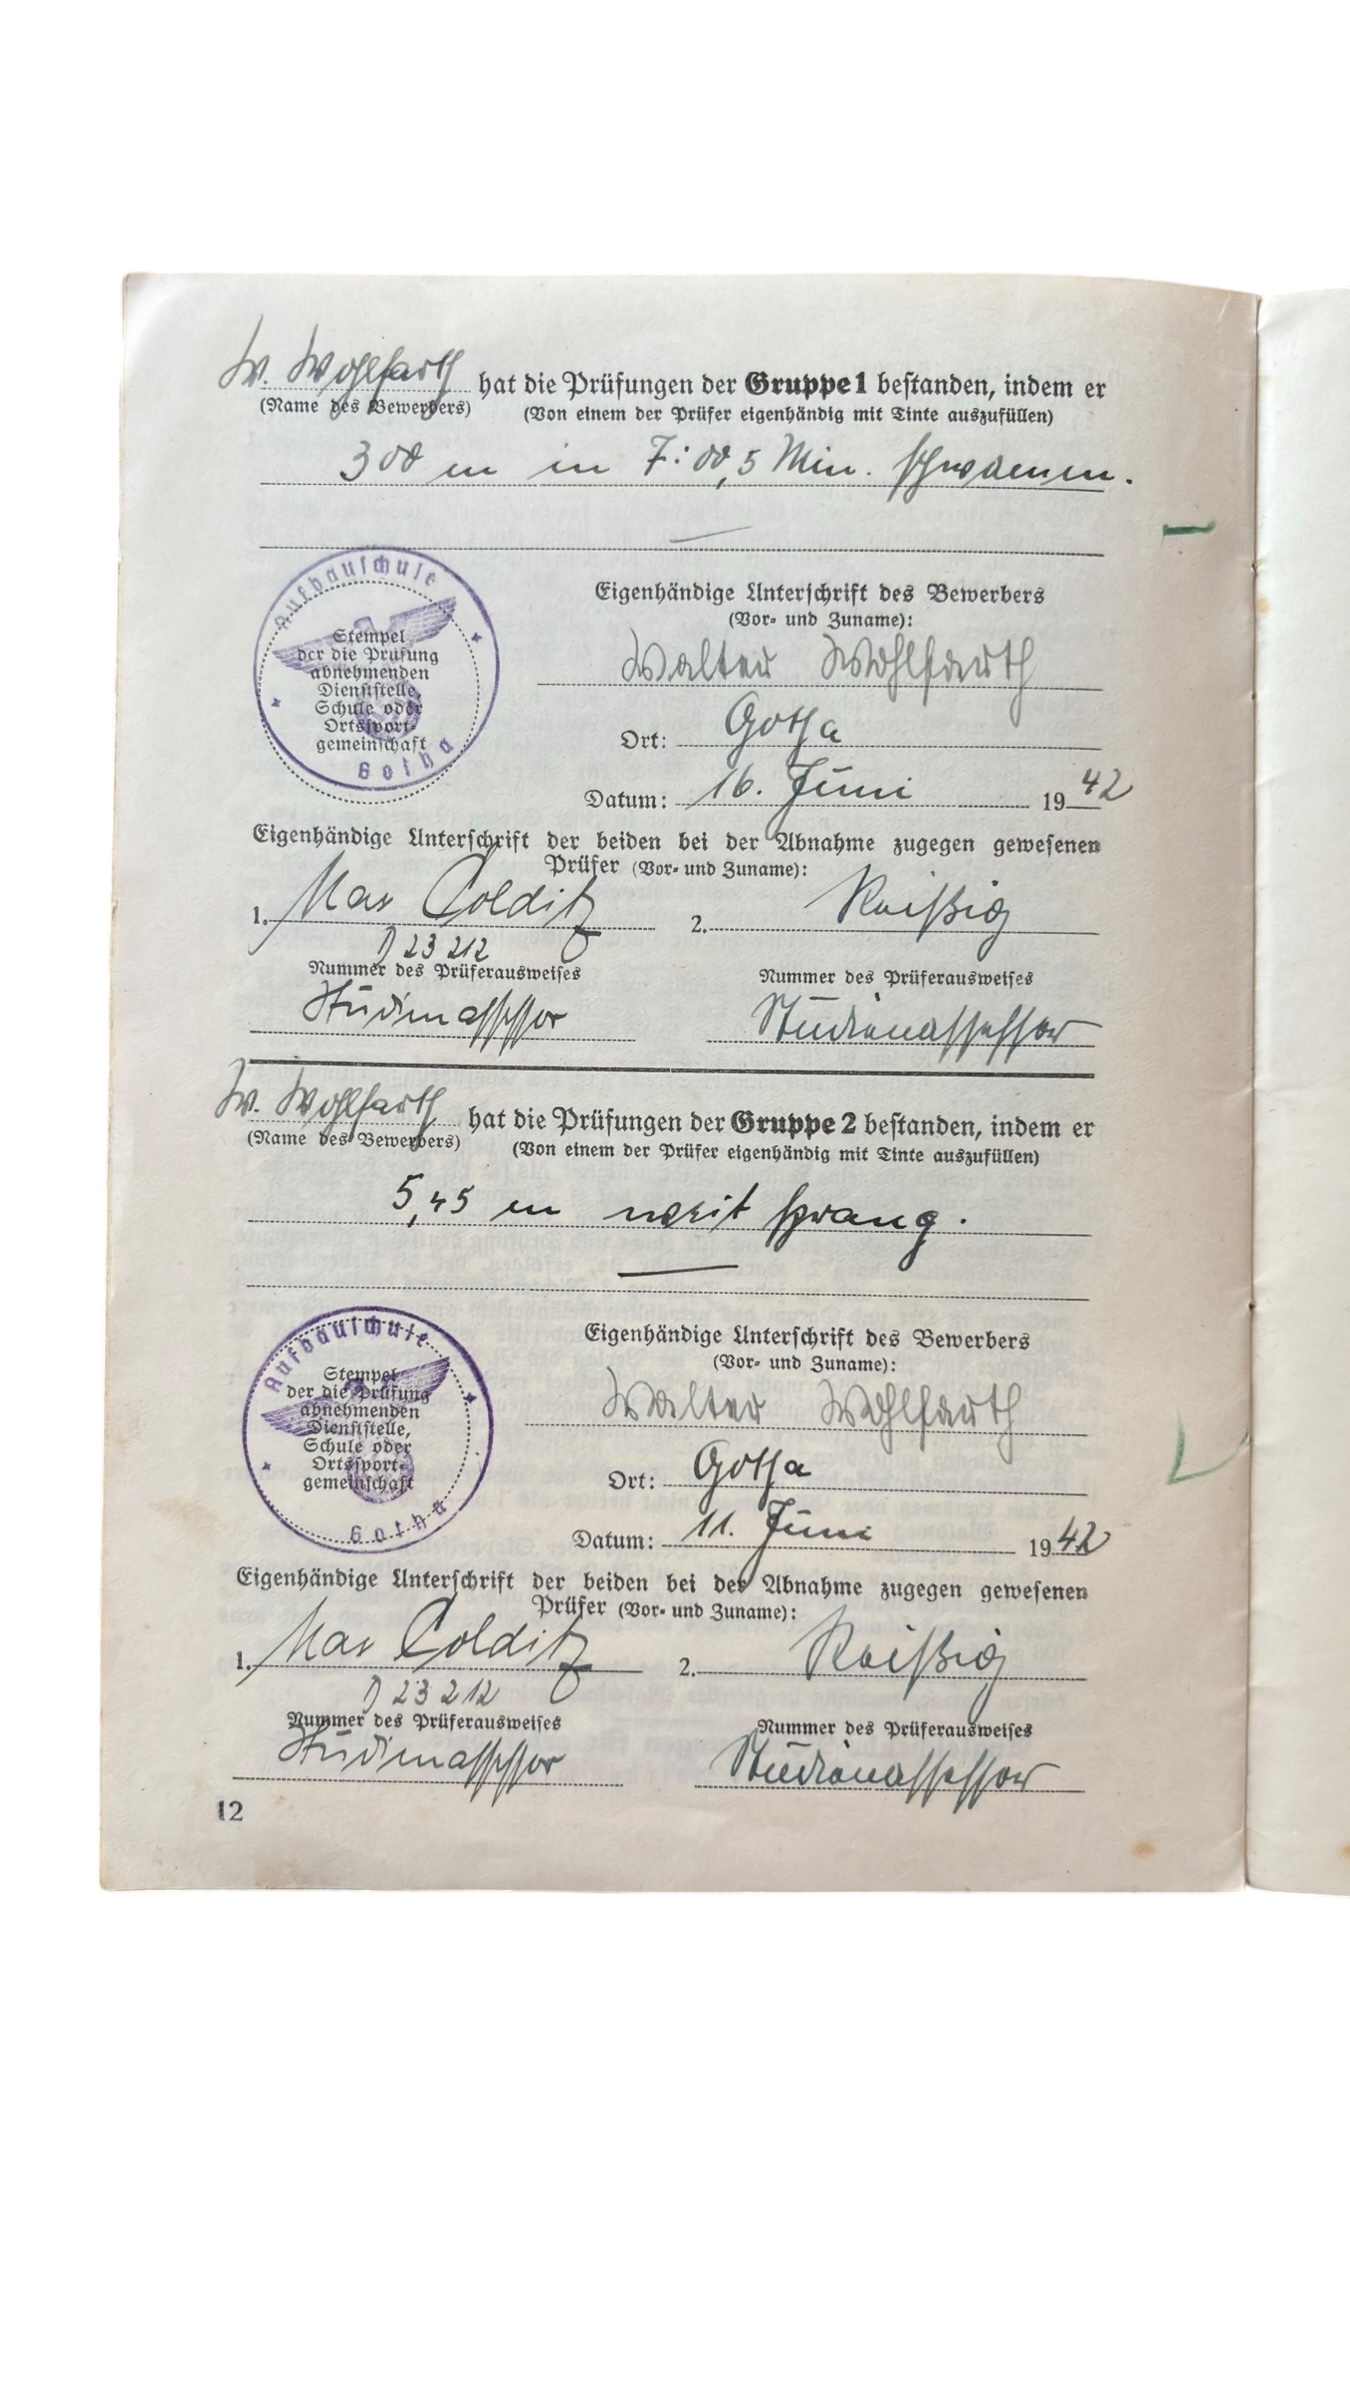 W. Wohlfarth hat die Prüfungen der Gruppe 1 bestanden, indem er
(Name des Bewerbers) (Von einem der Prüfer eigenhändig mit Tinte auszufüllen)
300 m in 7:00,5 Min. schwamm.
Aufbauschule
Gotha
Stempel
der die Prüfung
abnehmenden
Dienststelle,
Schule oder
Ortssport-
gemeinschaft
Eigenhändige Unterschrift des Bewerbers
(Vor- und Zuname):
Walter Wohlfarth
Ort: Gotha
Datum: 16. Juni 1942
Eigenhändige Unterschrift der beiden bei der Abnahme zugegen gewesenen
Prüfer (Vor- und Zuname):
1. Max Colditz 2. Reißig
23 212
Nummer des Prüferausweises Nummer des Prüferausweises
Studienassessor Studienassessor
W. Wohlfarth hat die Prüfungen der Gruppe 2 bestanden, indem er
(Name des Bewerbers) (Von einem der Prüfer eigenhändig mit Tinte auszufüllen)
5,45 m weit sprang.
Aufbauschule
Gotha
Stempel
der die Prüfung
abnehmenden
Dienststelle,
Schule oder
Ortssport-
gemeinschaft
Eigenhändige Unterschrift des Bewerbers
(Vor- und Zuname):
Walter Wohlfarth
Ort: Gotha
Datum: 11. Juni 1942
Eigenhändige Unterschrift der beiden bei der Abnahme zugegen gewesenen
Prüfer (Vor- und Zuname):
1. Max Colditz 2. Reißig
23 212
Nummer des Prüferausweises Nummer des Prüferausweises
Studienassessor Studienassessor
12